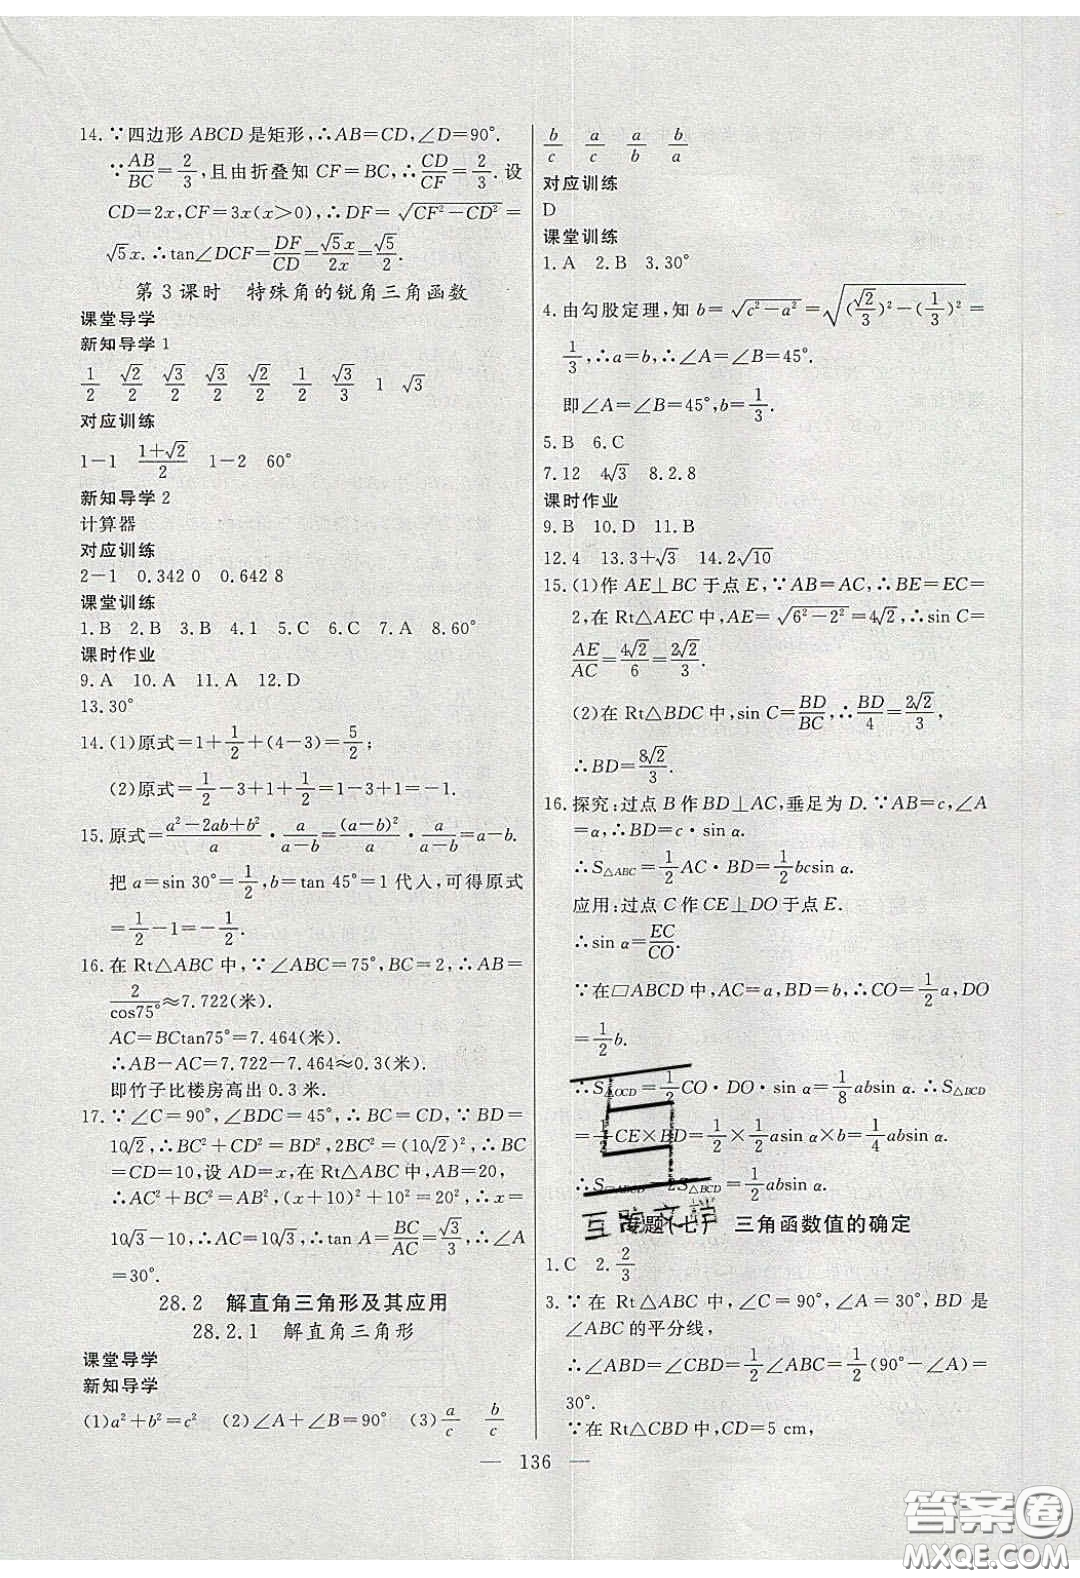 14.∵四边形 ABCD 是矩形,∴AB=CD,∠D=90°.
∵AB/BC=2/3,且由折叠知 CF=BC,∴CD/CF=2/3.设
CD=2x,CF=3x(x>0),∴DF=√(CF²-CD²)=
√5x.∴tan∠DCF=DF/CD=√5x/2x=√5/2.
第3课时 特殊角的锐角三角函数
课堂导学
新知导学1
1/2 √2/2 √3/2 √3/2 √2/2 1/2 √3/3 1 √3
对应训练
1-1 (1+√2)/2 1-2 60°
新知导学2
计算器
对应训练
2-1 0.342 0 0.642 8
课堂训练
1.B 2.B 3.B 4.1 5.C 6.C 7.A 8.60°
课时作业
9.A 10.A 11.A 12.D
13.30°
14.(1)原式=1+1/2+(4-3)=5/2;
(2)原式=1/2-3+1+1/2=1-3+1=-1.
15.原式=(a²-2ab+b²)/a·a/(a-b)=(a-b)²/a·a/(a-b)=a-b.
把 a=sin 30°=1/2,b=tan 45°=1代入,可得原式
=1/2-1=-1/2.
16.在 Rt△ABC 中,∵∠ABC=75°,BC=2,∴AB=
2/cos75°≈7.722(米).
AC=BCtan75°≈7.464(米).
∴AB-AC=7.722-7.464≈0.3(米).
即竹子比楼房高出 0.3 米.
17.∵∠C=90°,∠BDC=45°,∴BC=CD,∵BD=
10√2,∴BC²+CD²=BD²,2BC²=(10√2)²,∴BC
=CD=10,设 AD=x,在 Rt△ABC 中,AB=20,
∴AC²+BC²=AB²,(x+10)²+10²=20²,∴x=
10√3-10,∴AC=10√3,∴tan A=BC/AC=√3/3,∴∠A
=30°.
28.2 解直角三角形及其应用
28.2.1 解直角三角形
课堂导学
新知导学
(1)a²+b²=c² (2)∠A+∠B=90° (3)a/c b/c
b/c a/c a/b b/a
对应训练
D
课堂训练
1.A 2.B 3.30°
4.由勾股定理,知 b=√(c²-a²)=√((√2/3)²-(1/3)²)=
1/3,∴a=b,∴∠A=∠B=45°.
即∠A=∠B=45°,b=1/3.
5.B 6.C
7.12 4√3 8.2.8
课时作业
9.B 10.D 11.B
12.4 13.3+√3 14.2√10
15.(1)作 AE⊥BC 于点 E,∵AB=AC,∴BE=EC=
2,在 Rt△AEC 中,AE=√(6²-2²)=4√2,∴sin C=
AE/AC=4√2/6=2√2/3.
(2)在 Rt△BDC 中,sin C=BD/BC,∴BD/4=2√2/3,
∴BD=8√2/3.
16.探究:过点 B 作 BD⊥AC,垂足为 D.∵AB=c,∠A
=α,∴BD=c·sin α.
∴S△ABC=1/2AC·BD=1/2bcsin α.
应用:过点 C 作 CE⊥DO 于点 E.
∴sin α=EC/CO.
∵在□ABCD 中,AC=a,BD=b,∴CO=1/2a,DO
=1/2b.
∴S△OCD=1/2CO·DO·sin α=1/8absin α.∴S△BCD
=1/2CE×BD=1/2×1/2asin α×b=1/4absin α,
∴S□ABCD=2S△BCD=1/2absin α.
专题(七) 三角函数值的确定
1.C 2.2/3
3.∵在 Rt△ABC 中,∠C=90°,∠A=30°,BD 是
∠ABC 的平分线,
∴∠ABD=∠CBD=1/2∠ABC=1/2(90°-∠A)=
30°.
∵在 Rt△CBD 中,CD=5 cm,
— 136 —
答案圈
MXQE.COM